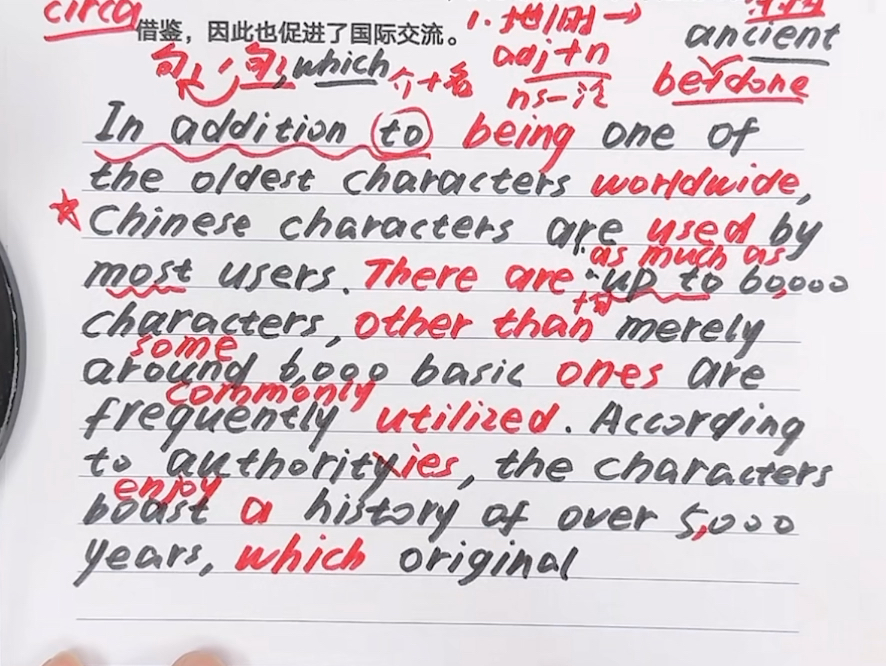 circa 借鉴，因此也促进了国际交流。 1. 地/时→
ancient
句1, 句2, which 介+名 adj+n be done
In addition to being one of
the oldest characters worldwide,
Chinese characters are used by
as much as
most users. There are up to 60,000
characters, other than merely
some
around 6,000 basic ones are
commonly
frequently utilized. According
to authorityies, the characters
enjoy
boast a history of over 5,000
years, which original